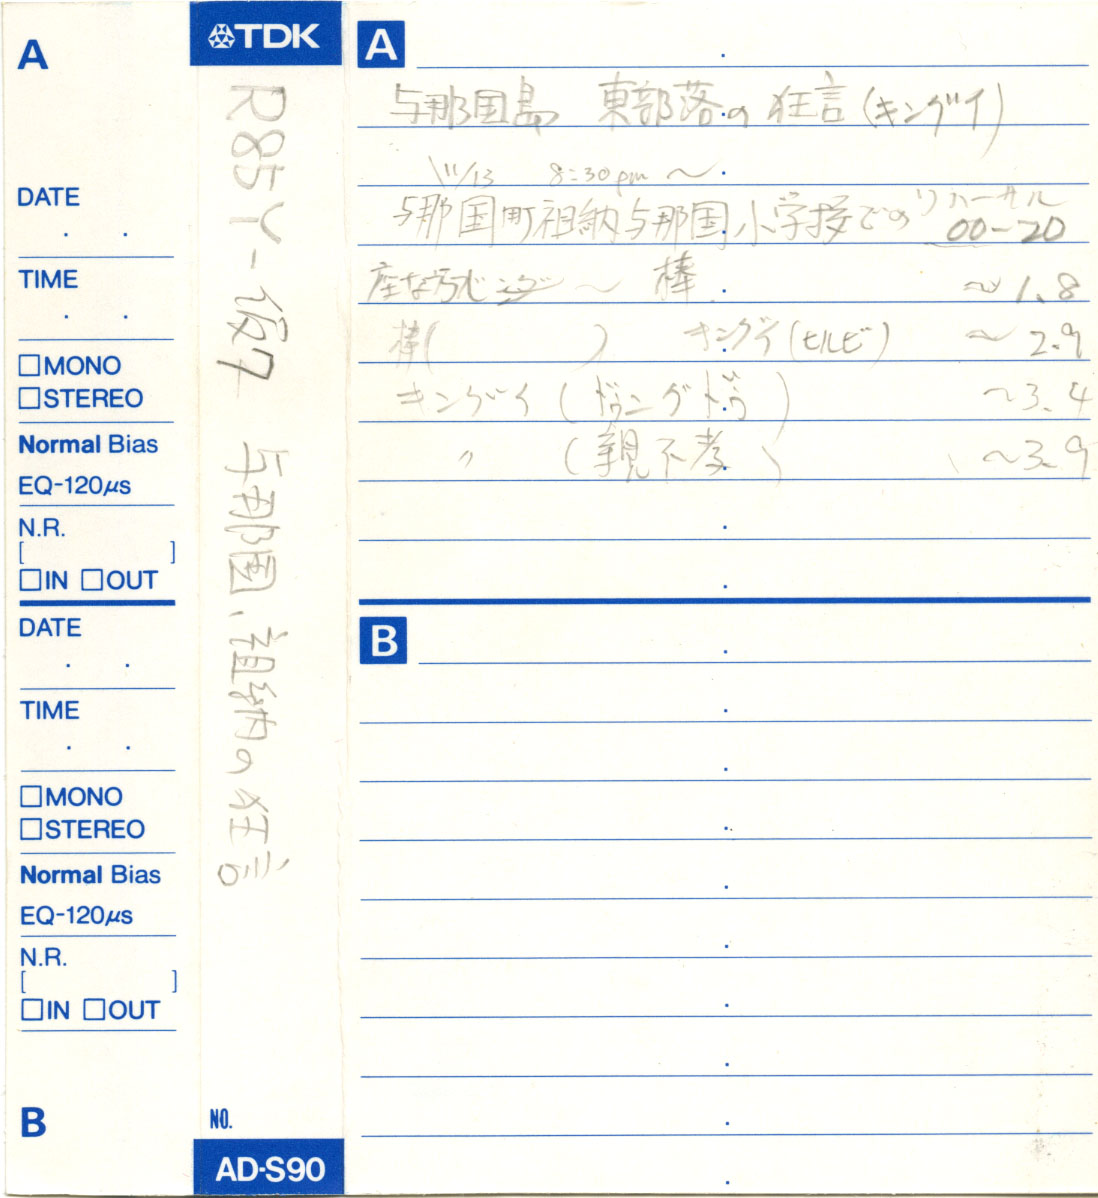 A
DATE
. .
TIME
. .
□MONO
□STEREO
Normal Bias
EQ-120μs
N.R.
[ ]
□IN □OUT
DATE
. .
TIME
. .
□MONO
□STEREO
Normal Bias
EQ-120μs
N.R.
[ ]
□IN □OUT
B
TDK
R85Y-仮7 与那国、祖納の狂言
NO.
AD-S90
A
与那国島 東部落の狂言(キングイ)
11/13 8:30pm ~
与那国町祖納与那国小学校でのリハーサル 00-20
座な ~ 棒 ~1.8
棒( ) キングイ(ヒルビ) ~2.9
キングイ(ドゥングトゥ) ~3.4
〃 (親不孝) ~3.9
B